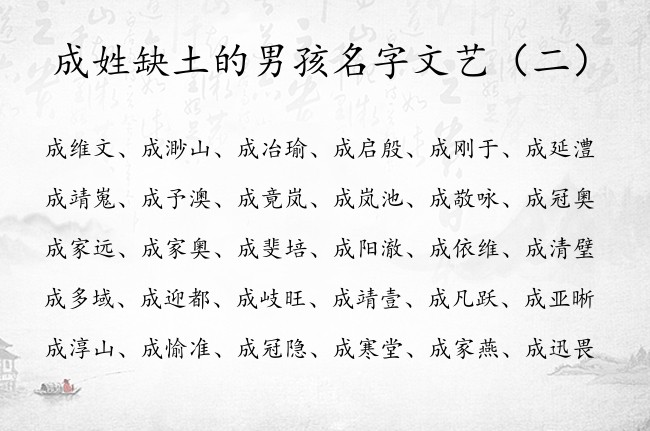 成姓缺土的男孩名字文艺（二）
成维文、成渺山、成冶瑜、成启殷、成刚于、成延澧
成靖嵬、成予澳、成竟岚、成岚池、成敬咏、成冠奥
成家远、成家奥、成斐培、成阳澈、成依维、成清璧
成多域、成迎都、成歧旺、成靖壹、成凡跃、成亚晰
成淳山、成愉准、成冠隐、成寒堂、成家燕、成迅畏